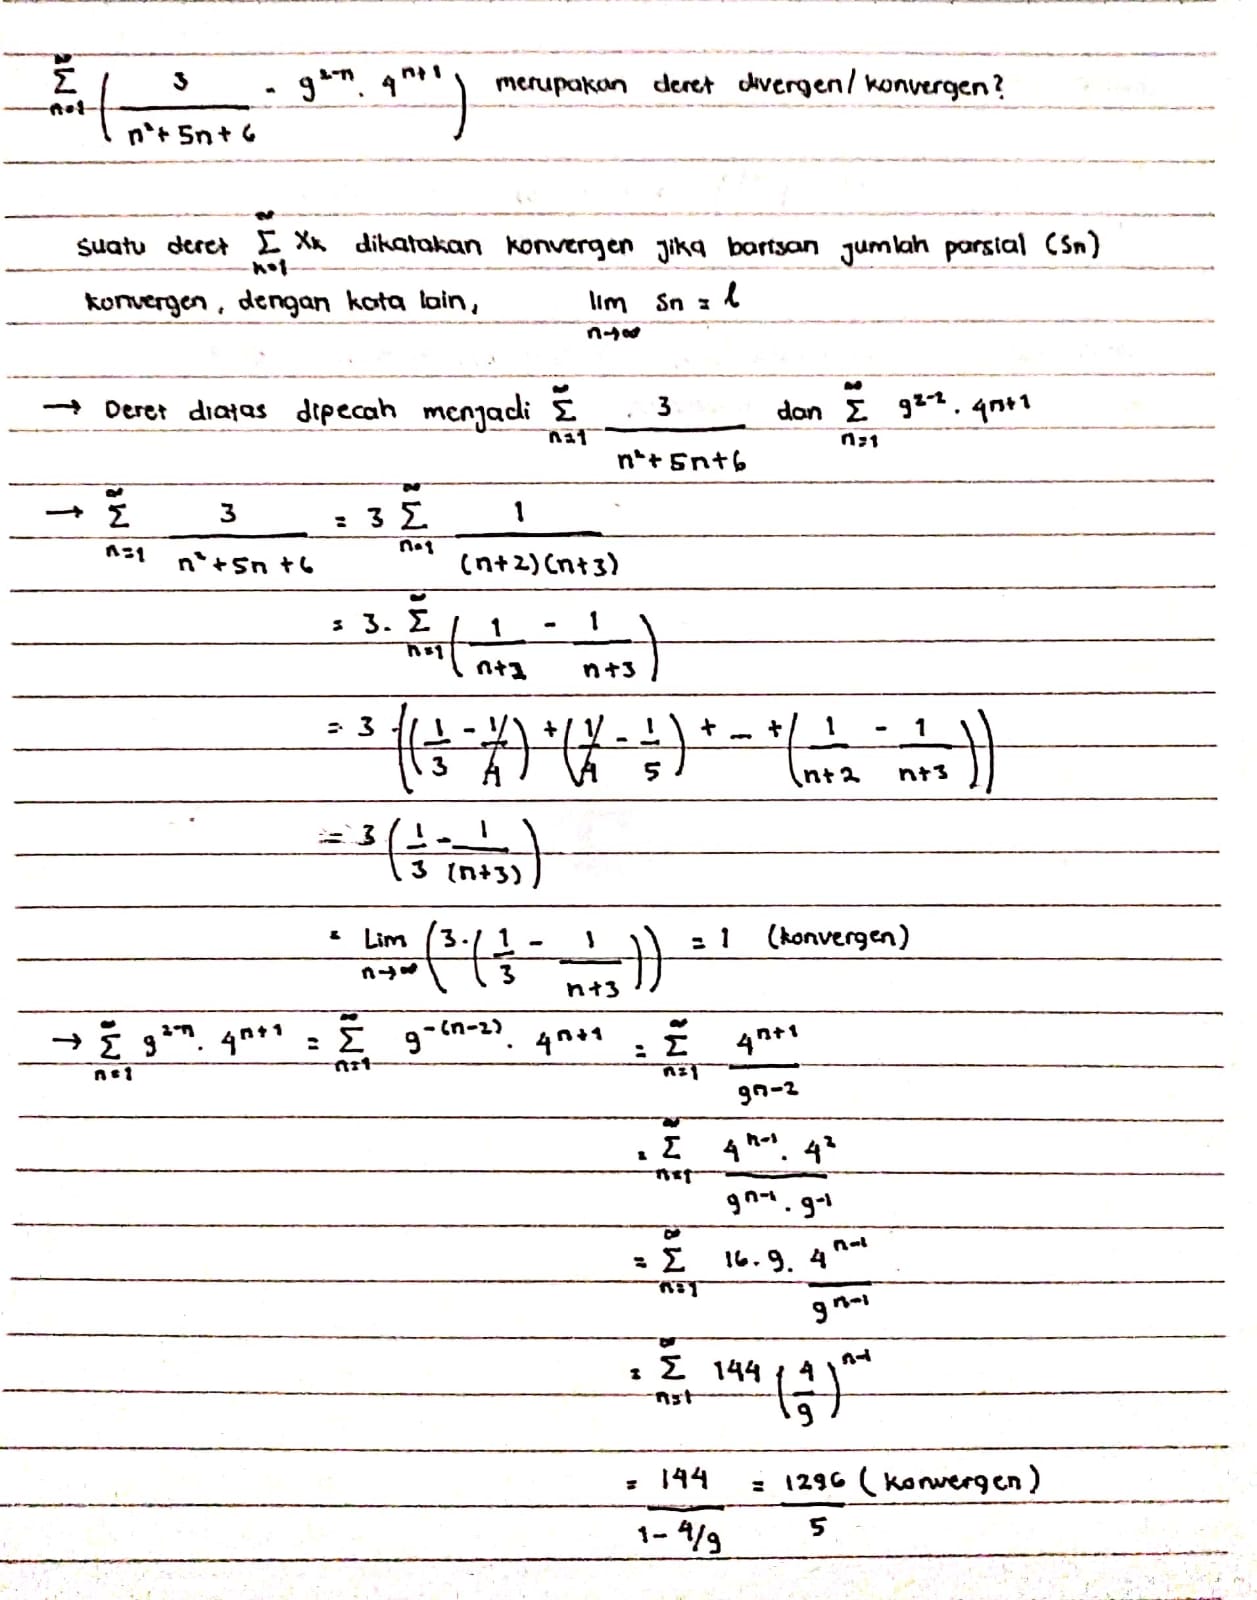 ∞ Σ n=1 ( 3 / n²+5n+6 - 9^(2-n) . 4^(n+1) ) merupakan deret divergen/ konvergen?
Suatu deret ∞ Σ n=1 Xn dikatakan konvergen jika barisan jumlah parsial (Sn)
konvergen, dengan kata lain, lim n→∞ Sn = l
→ Deret diatas dipecah menjadi ∞ Σ n=1 3 / n²+5n+6 dan ∞ Σ n=1 9^(2-2) . 4^(n+1)
→ ∞ Σ n=1 3 / n²+5n+6 = 3 ∞ Σ n=1 1 / (n+2)(n+3)
= 3. ∞ Σ n=1 ( 1 / n+2 - 1 / n+3 )
= 3 ( (1/3 - 1/4) + (1/4 - 1/5) + ... + ( 1 / n+2 - 1 / n+3 ))
= 3 ( 1/3 - 1 / (n+3) )
= Lim n→∞ ( 3. ( 1/3 - 1 / n+3 )) = 1 (konvergen)
→ ∞ Σ n=1 9^(2-n) . 4^(n+1) = ∞ Σ n=1 9^(-(n-2)) . 4^(n+1) = ∞ Σ n=1 4^(n+1) / 9^(n-2)
= ∞ Σ n=1 4^(n-1) . 4² / 9^(n-1) . 9^(-1)
= ∞ Σ n=1 16 . 9 . 4^(n-1) / 9^(n-1)
= ∞ Σ n=1 144 ( 4/9 )^(n-1)
= 144 / 1 - 4/9 = 1296 / 5 (Konvergen)